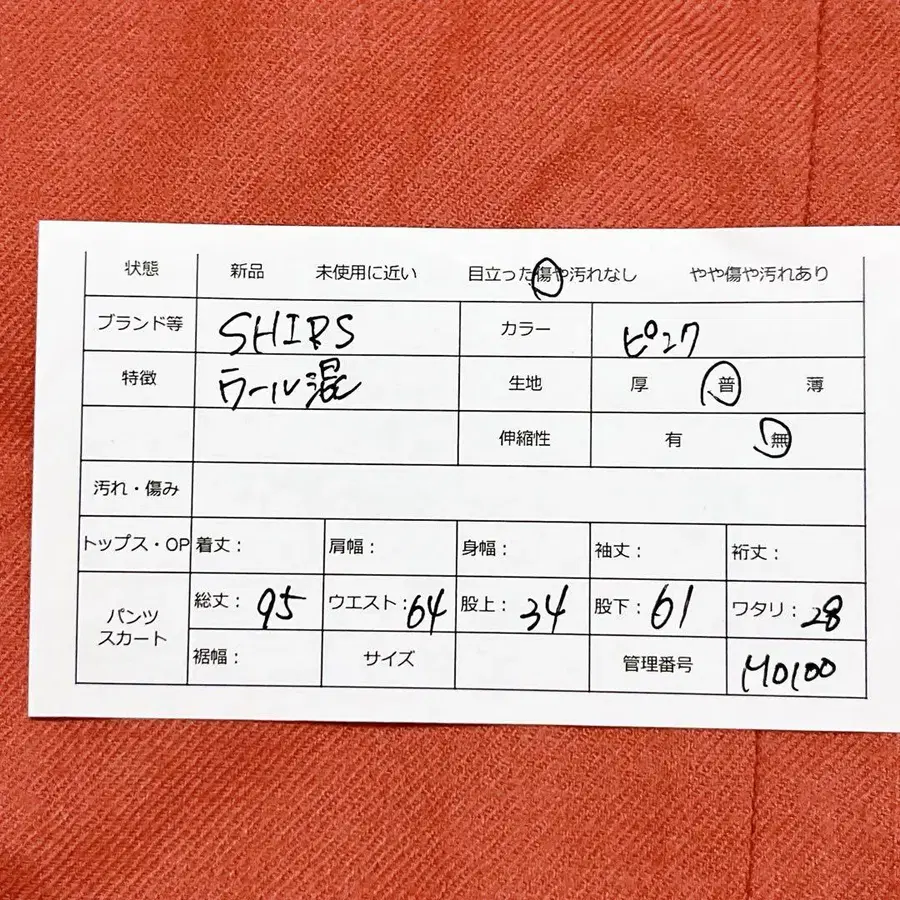 状態 新品 未使用に近い 目立った傷や汚れなし やや傷や汚れあり
ブランド等 SHIPS カラー ピンク
特徴 ウール混 生地 厚 普 薄
伸縮性 有 無
汚れ・傷み
トップス・OP 着丈： 肩幅： 身幅： 袖丈： 裄丈：
パンツ スカート 総丈：95 ウエスト：64 股上：34 股下：61 ワタリ：28
裾幅： サイズ 管理番号 M0100